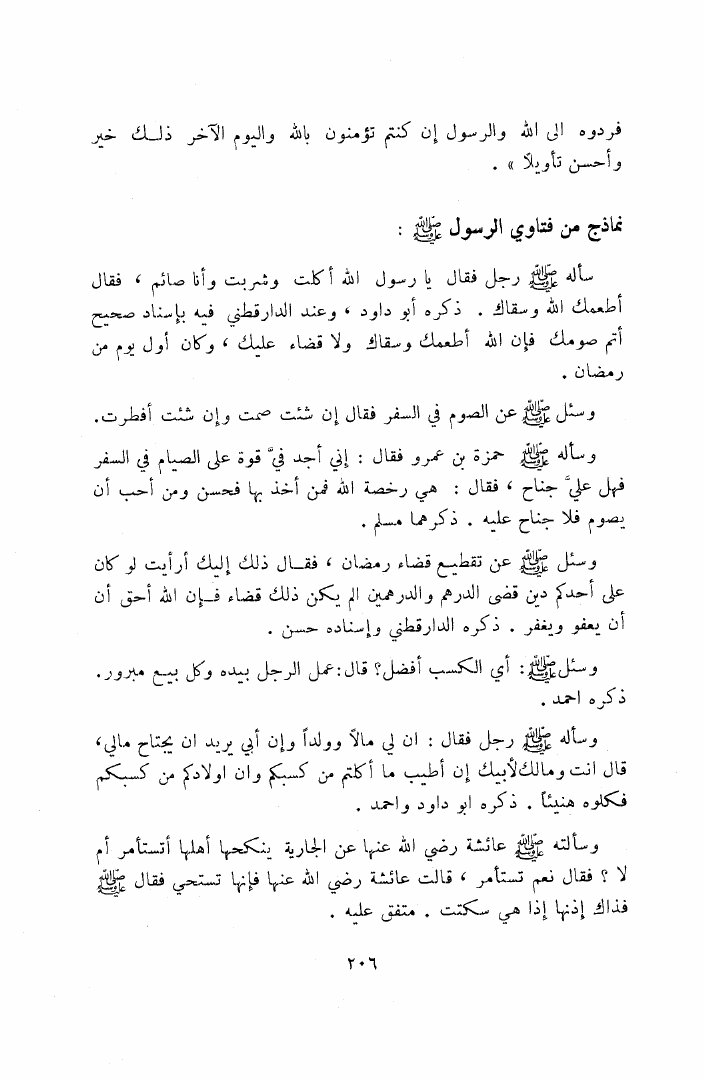 فردوه الى الله والرسول إن كنتم تؤمنون بالله واليوم الآخر ذلــك خير
وأحسن تأويلاً » .
نماذج من فتاوي الرسول ﷺ :
سأله ﷺ رجل فقال يا رسول الله أكلت وشربت وأنا صائم ، فقال
أطعمك الله وسقاك . ذكره أبو داود ، وعند الدارقطني فيه بإسناد صحيح
أتم صومك فإن الله أطعمك وسقاك ولا قضاء عليك ، وكان أول يوم من
رمضان .
وسئل ﷺ عن الصوم في السفر فقال إن شئت صمت وإن شئت أفطرت.
وسأله ﷺ حمزة بن عمرو فقال : إني أجد فيَّ قوة على الصيام في السفر
فهل عليَّ جناح ، فقال : هي رخصة الله فمن أخذ بها فحسن ومن أحب أن
يصوم فلا جناح عليه . ذكرهما مسلم .
وسئل ﷺ عن تقطيع قضاء رمضان ، فقــال ذلك إليك أرأيت لو كان
على أحدكم دين قضى الدرهم والدرهمين الم يكن ذلك قضاء فــإن الله أحق أن
أن يعفو ويغفر . ذكره الدارقطني وإسناده حسن .
وسئل ﷺ : أي الكسب أفضل؟ قال:عمل الرجل بيده وكل بيـع مبرور.
ذكره احمد .
وسأله ﷺ رجل فقال : ان لي مالاً وولداً وإن أبي يريد ان يجتاح مالي،
قال انت ومالك لأبيك إن أطيب ما أكلتم من كسبكم وان اولادكم من كسبكم
فكلوه هنيئاً . ذكره ابو داود واحمد .
وسألته ﷺ عائشة رضي الله عنها عن الجارية ينكحها أهلها أتستأمر أم
لا ؟ فقال نعم تستأمر ، قالت عائشة رضي الله عنها فإنها تستحي فقال ﷺ
فذاك إذنها إذا هي سكتت . متفق عليه .
٢٠٦